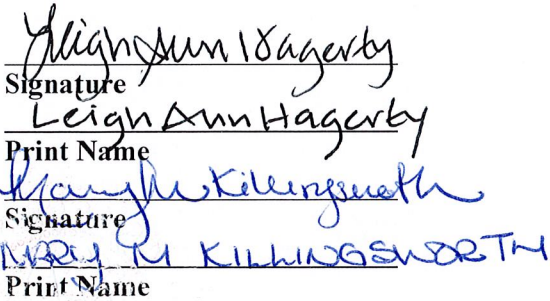 Leigh Ann Hagerty
Signature
Leigh Ann Hagerty
Print Name
Mary M Killingsworth
Signature
MARY M KILLINGSWORTH
Print Name